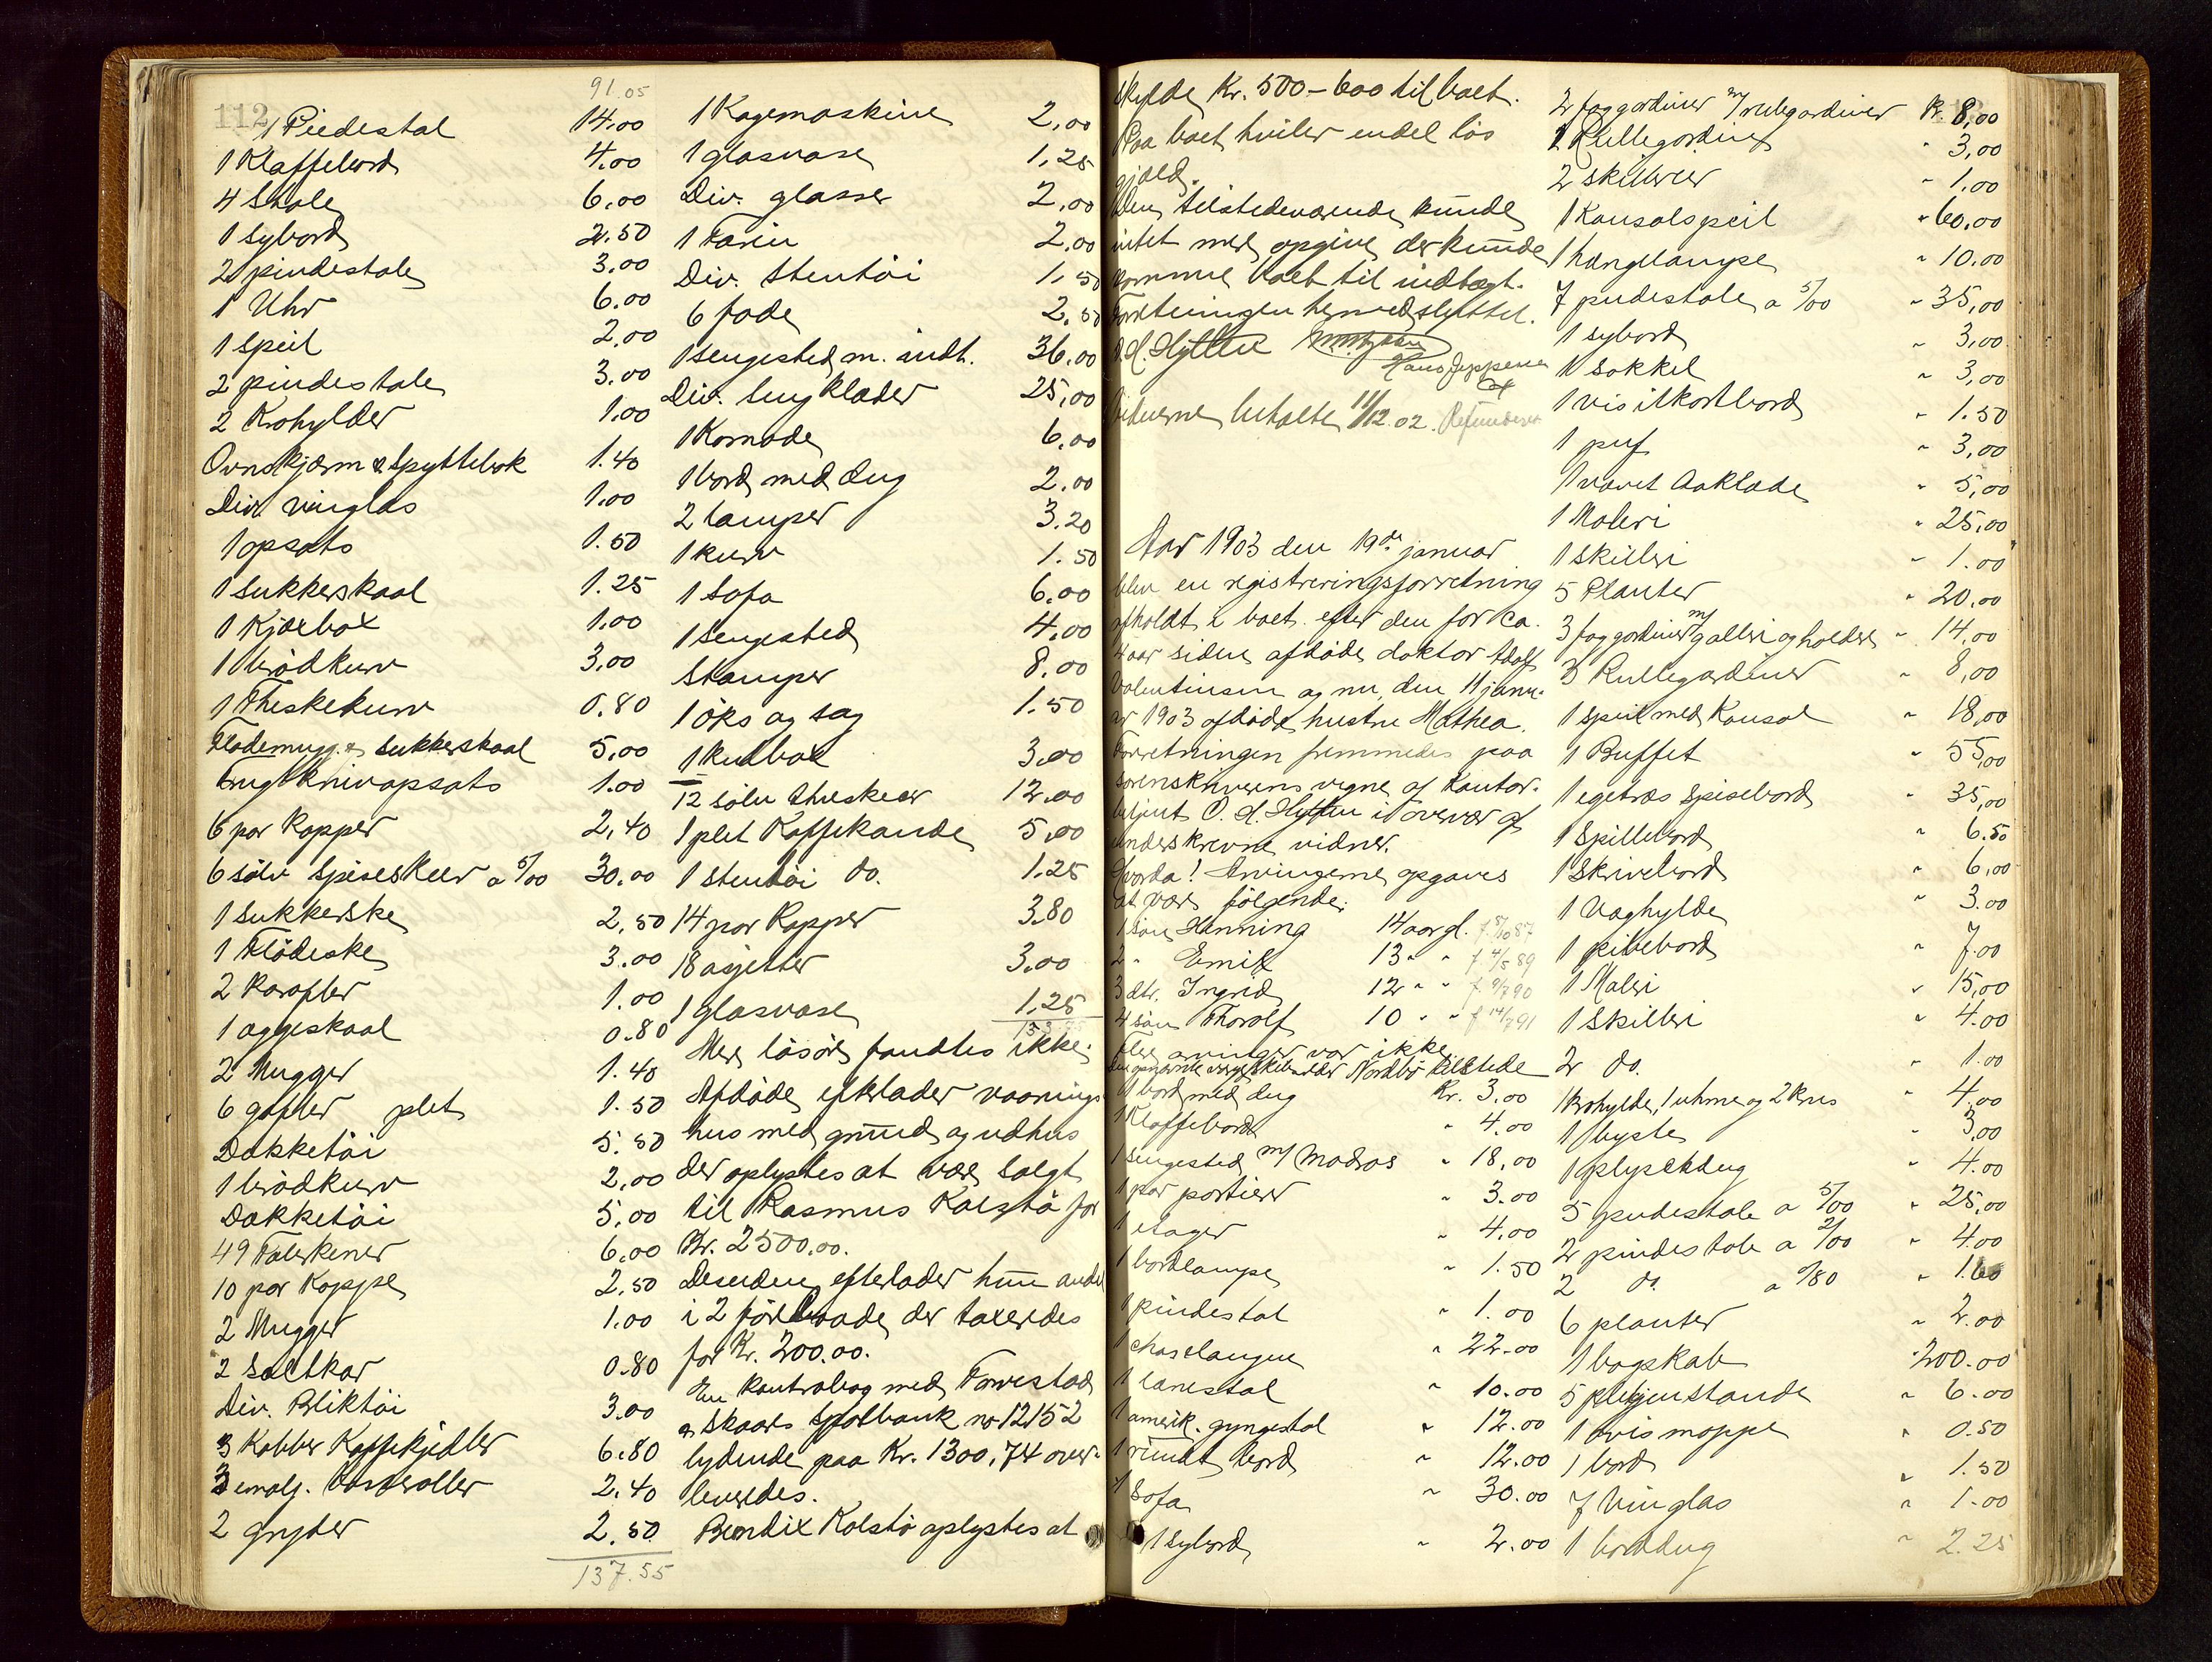 112
91.05
1 Piedestal 14.00
1 Klaffebord 4.00
4 Stole 6.00
1 Sybord 2.50
2 pindestole 3.00
1 Uhr 6.00
1 Speil 2.00
2 pindestole 3.00
2 Krohylder 1.00
Ovnskjærm & Spyttebak 1.40
Div. vinglas 1.00
1 opsats 1.50
1 Sukkerskaal 1.25
1 Kjæxbox 1.00
1 brödkurv 3.00
1 Theskekurv 0.80
Flödemugge & Sukkerskaal 5.00
Frugtknivopsats 1.00
6 par Kopper 2.40
6 sölv Spiseskeer a 5/00 30.00
1 Sukkerske 2.50
1 Flödeske 3.00
2 Karafler 1.00
1 æggeskaal 0.80
2 Mugger 1.40
6 gafler plet 1.50
Dækketöi 5.50
1 brödkurv 2.00
Dækketöi 5.00
49 Tallerkener 6.00
10 par Kopper 2.50
2 Mugger 1.00
2 Saltkar 0.80
Div. Bliktöi 3.00
3 Kobber Kaffekjedler 6.80
3 emalj. Kasseroller 2.40
2 gryder 2.50
137.55
1 Kagemaskine 2.00
1 glasvase 1.25
Div. glasser 2.00
1 Farin 2.00
Div. Stentöi 1.50
6 fade 2.50
1 sengested m. indh. 36.00
Div. Sengklæder 25.00
1 Komode 6.00
1 bord med dug 2.00
2 lamper 3.20
1 kurv 1.50
1 Sofa 6.00
1 sengested 4.00
Stamper 8.00
1 öks og sag 1.50
1 kulbox 3.00
12 sölv theskeer 12.00
1 plet Kaffekande 5.00
1 stentöi do. 1.25
14 par Kopper 3.80
18 asjetter 3.00
1 glasvase 1.25
Mere lösöre fandtes ikke.
Afdöde efterlader vaanings
hus med grund og udhus
der oplystes at være solgt
til Rasmus Kolstö for
Kr. 2500.00.
Desuden efterlader hun andel
i 2 der taxeredes
for Kr. 200.00.
En kontrabog med Torvestad
og Skaare Spbank no 12152
lydende paa Kr. 1300,74 over-
leveredes.
Bendix Kolstö oplystes at
skylde Kr. 500-600 til boet.
Paa boet hviler endel lös
gjæld.
Den tilstedeværende kunde
intet mere opgive der kunde
komme boet til indtægt.
Forretningen hermed sluttet.
O. H. Hytten
Hans Jeppesen
Vidnerne betalte 11/12.02.
Aar 1903 den 19de januar
blev en registreringsforretning
afholdt i boet efter den for ca.
4 aar siden afdöde doktor Adolf
Valentinsen og nu, den 11 janu-
ar 1903 afdöde hustru Mathea.
Forretningen fremmedes paa
sorenskriverens vegne af Kontor-
betjent O. H. Hytten i overvær af
underskrevne vidner.
Hvorda! Arvingerne opgaves
at være fölgende:
1 sön Henning 14 aar gl.
2 " Emil 13 " " f 4/5 89
3 dtr. Ingrid 12 " "
4 sön Thorolf 10 " "
Flere arvinger var ikke.
1 bord med dug Kr. 3.00
1 Klaffebord " 4.00
1 sengested m/ Madras " 18.00
1 par portierer " 3.00
1 etager " 4.00
1 bordlampe " 1.50
1 pindestol " 1.00
1 chaselangue " 22.00
1 lænestol " 10.00
1 amerik. gyngestol " 12.00
1 rundt bord " 12.00
1 Sofa " 30.00
1 Sybord " 2.00
2 fag gardiner m/ rulegardiner Kr. 8.00
1 Rullegardin " 3.00
2 skillerier " 1.00
1 Konsolspeil " 60.00
1 hængelampe " 10.00
7 pudestole a 5/00 " 35.00
1 sybord " 3.00
1 Sokkel " 3.00
1 visitkortbord " 1.50
1 puf " 3.00
1 vævet Aaklæde " 5.00
1 Maleri " 25.00
1 skilleri " 1.00
5 Planter " 20.00
3 fag gardiner m/ galleri og holdere " 14.00
3 Rullegardiner " 8.00
1 speil med Konsol " 18.00
1 Buffet " 55.00
1 egetræs Spisebord " 35.00
1 Spillebord " 6.50
1 Skrivebord " 6.00
1 Vaghylde " 3.00
1 pibebord " 7.00
1 Maleri " 15.00
1 skilleri " 4.00
2 do. " 1.00
1 Krohylde, 1 urne og 2 Krus " 4.00
1 byste " 3.00
1 plyschdug " 4.00
5 pudestole a 5/00 " 25.00
2 pindestole a 2/00 " 4.00
2 do. a /80 " 1.60
6 planter " 2.00
1 bogskab " 200.00
5 pletgjenstande " 6.00
1 avismappe " 0.50
1 bord " 1.50
7 Vinglas " 1.00
1 borddug " 2.25